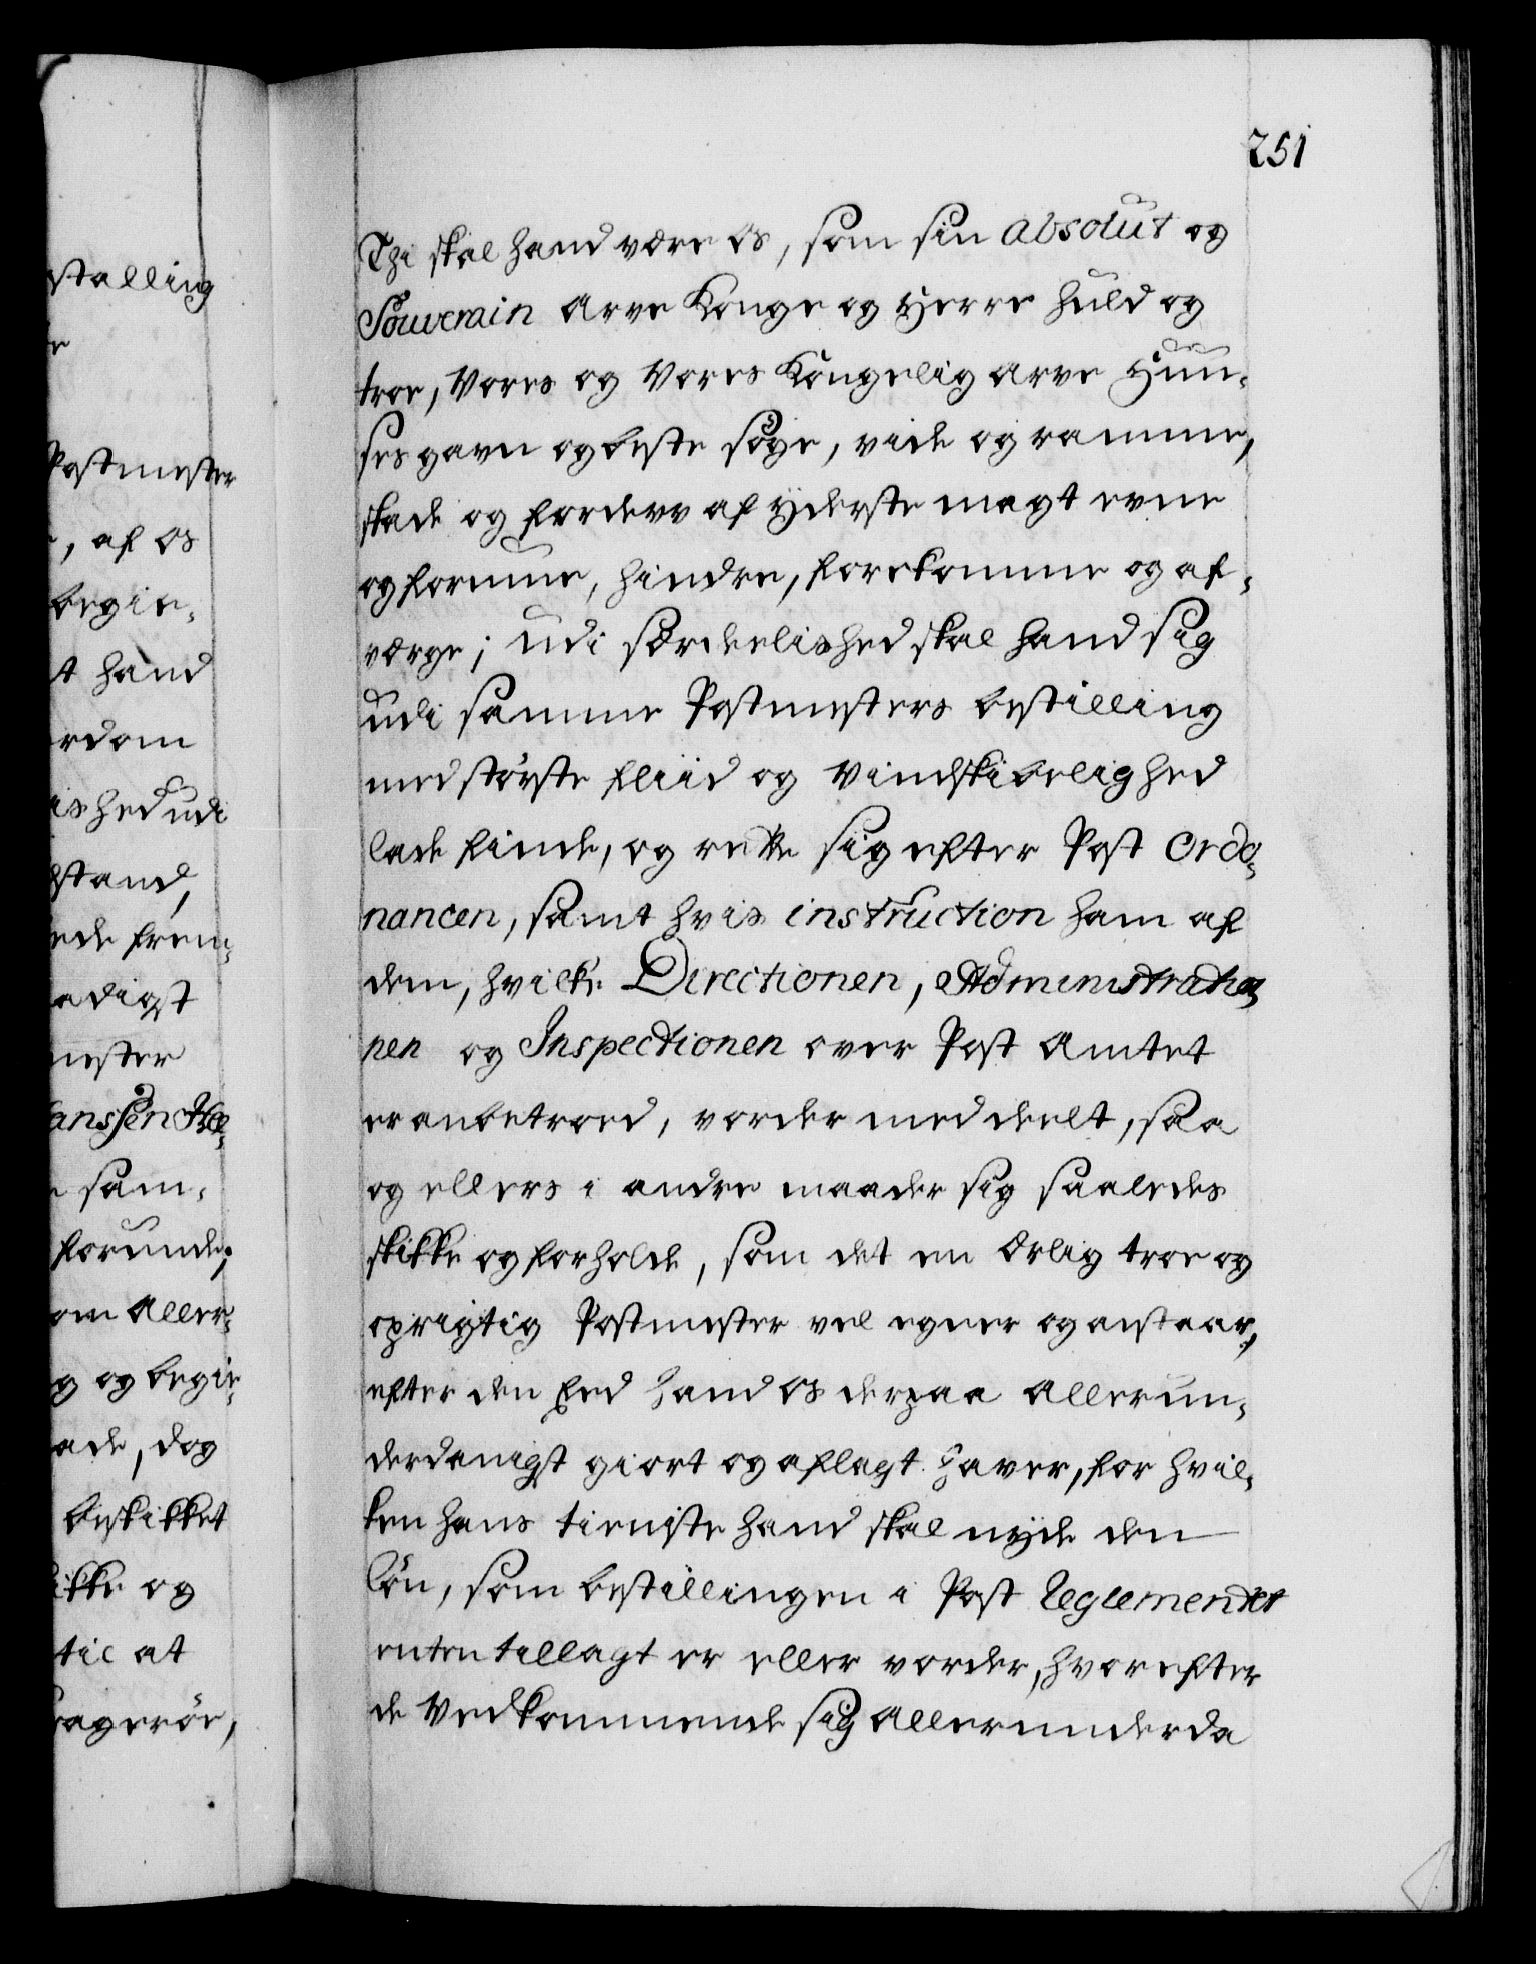 251
Thi skal hand være Os, som sin absolut og
Souverain Arve Konge og Herre huld og
troe, Vores og Vores Kongelig Arve Huu-
ses gavn og beste søge, vide og ramme,
skade og forderv af yderste magt evne
og formue, hindre, forekomme og af-
værge; Udi særdeelished skal hand sig
udi samme Postmesters bestilling
med største fliid og Vindskibelighed
lade finde, og rette sig efter Post Ordo-
nancen, samt hvis instruction ham af
dem, hvilke Directionen, Administratio-
nen og Inspectionen over Post Amtet
er anbetroed, vorder meddeelt, saa
og ellers i andre maader sig saaledes
skikke og forholde, som det en Ærlig troe og
oprigtig Postmester vel egner og anstaar,
efter den Eed hand Os derpaa allerun-
derdanigst giort og aflagt haver, for hvil-
ken hans tieniste hand skal nyde den
løn, som bestillingen i Post Reglementet
enten tillagt er eller vorder, hvorefter
de Vedkommende sig allerunderda
stalling
Postmester
, af Os
begie-
t hand
rdom
ished udi
stand,
ede frem-
adigst
mester
anssen
sam-
forunde;
om Aller-
g og begie-
ade, dog
beskikket
ikke og
tie at
ragerøe,